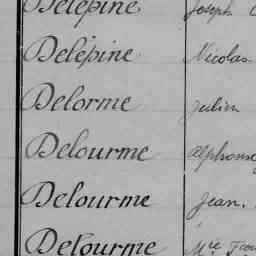 Delépine Joseph
Delépine Nicolas
Delorme Julien
Delourme Alphonse
Delourme Jean.
Delourme Mce